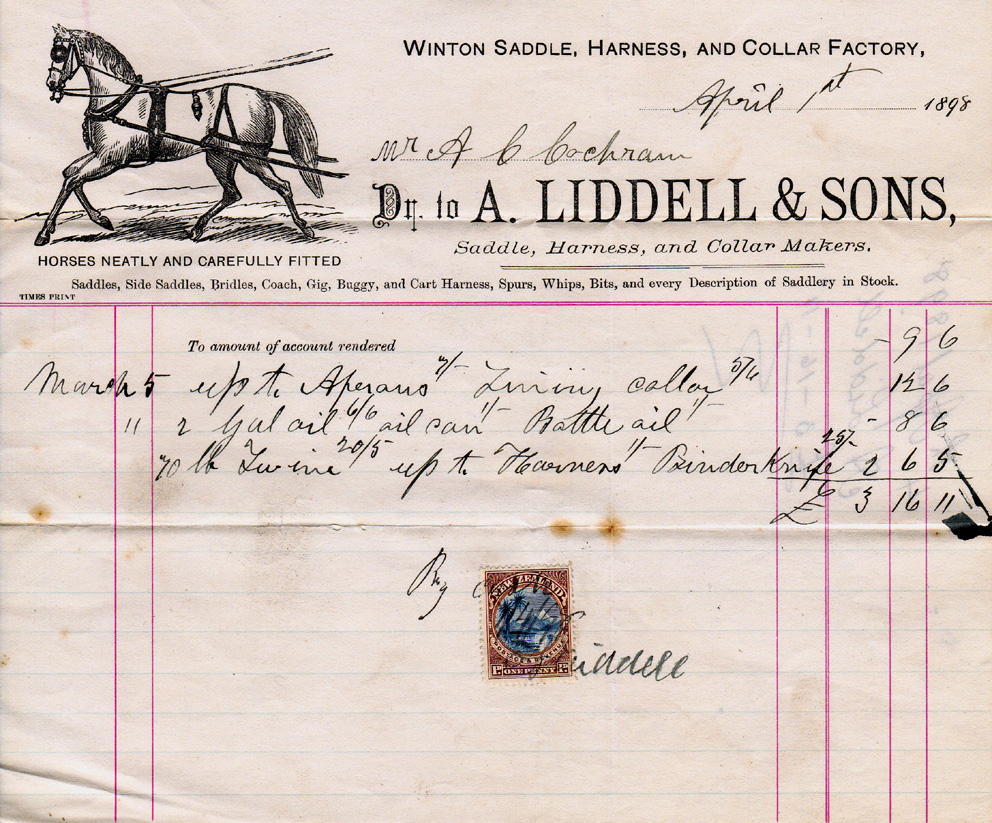 WINTON SADDLE, HARNESS, AND COLLAR FACTORY,
April 1st 1898
Mr A C Cochram
Dr. to A. LIDDELL & SONS,
Saddle, Harness, and Collar Makers.
HORSES NEATLY AND CAREFULLY FITTED
Saddles, Side Saddles, Bridles, Coach, Gig, Buggy, and Cart Harness, Spurs, Whips, Bits, and every Description of Saddlery in Stock.
TIMES PRINT
To amount of account rendered - 9 6
March 5 up to Aperans Lining collar 5/6 12 6
" 2 Gal oil 6/6 oil can 1/- Bottle oil 1/- - 8 6
70 lb Twine 20/5 1/- Binder Knife 25/- 2 6 5
£ 3 16 11
NEW ZEALAND
POSTAGE & REVENUE
1D ONE PENNY 1D
Liddell